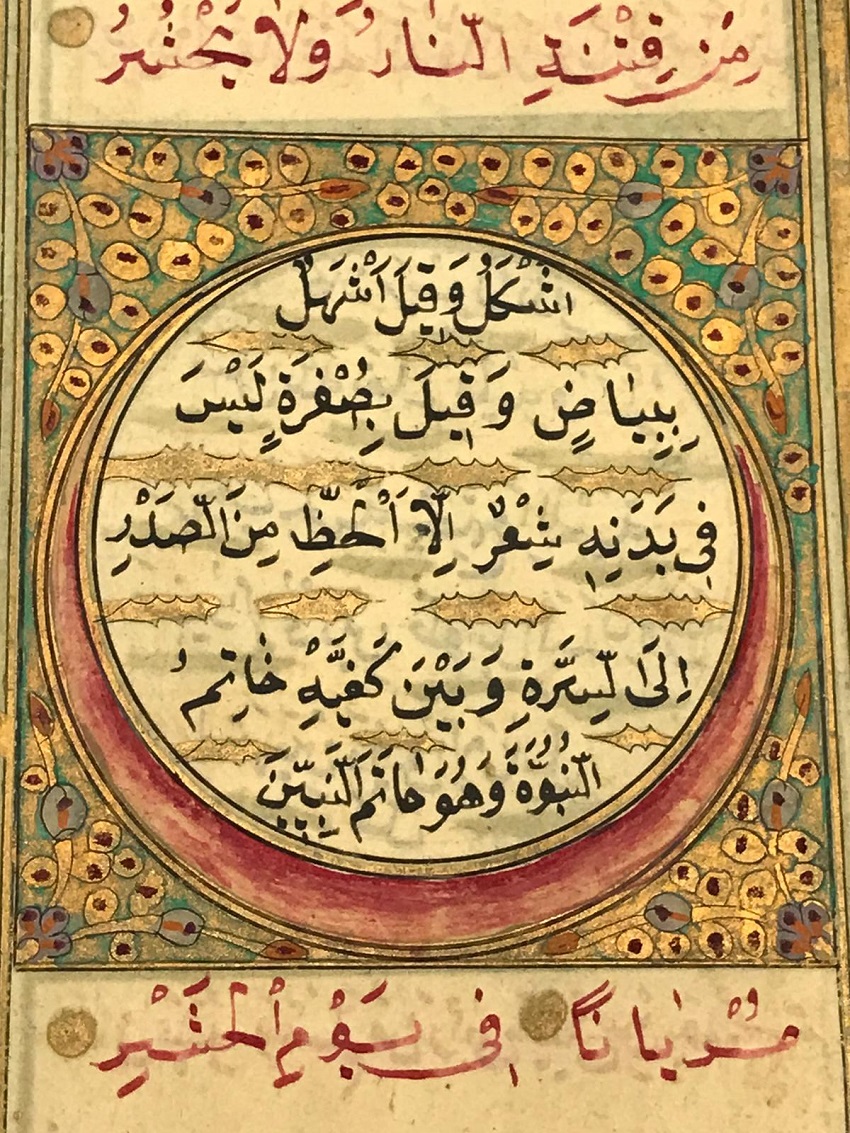 مِنْ فِتْنَةِ النَّارِ وَلَا يُحْشَرُ
اَشْكَلُ وَقِيلَ اَشْهَلُ
بِبِيَاضٍ وَقِيلَ بِصُفْرَةٍ لَيْسَ
فِي بَدَنِهِ شِعْرٌ اِلَّا اَلْخَطِّ مِنَ الصَّدْرِ
اِلَى السِّرَّةِ وَبَيْنَ كَفَيْهِ خَاتِمُ
النُّبُوَّةُ وَهُوَ خَاتَمُ النَّبِيِّنَ
عُرْيَانًا فِي يَوْمِ الْحَشْرِ